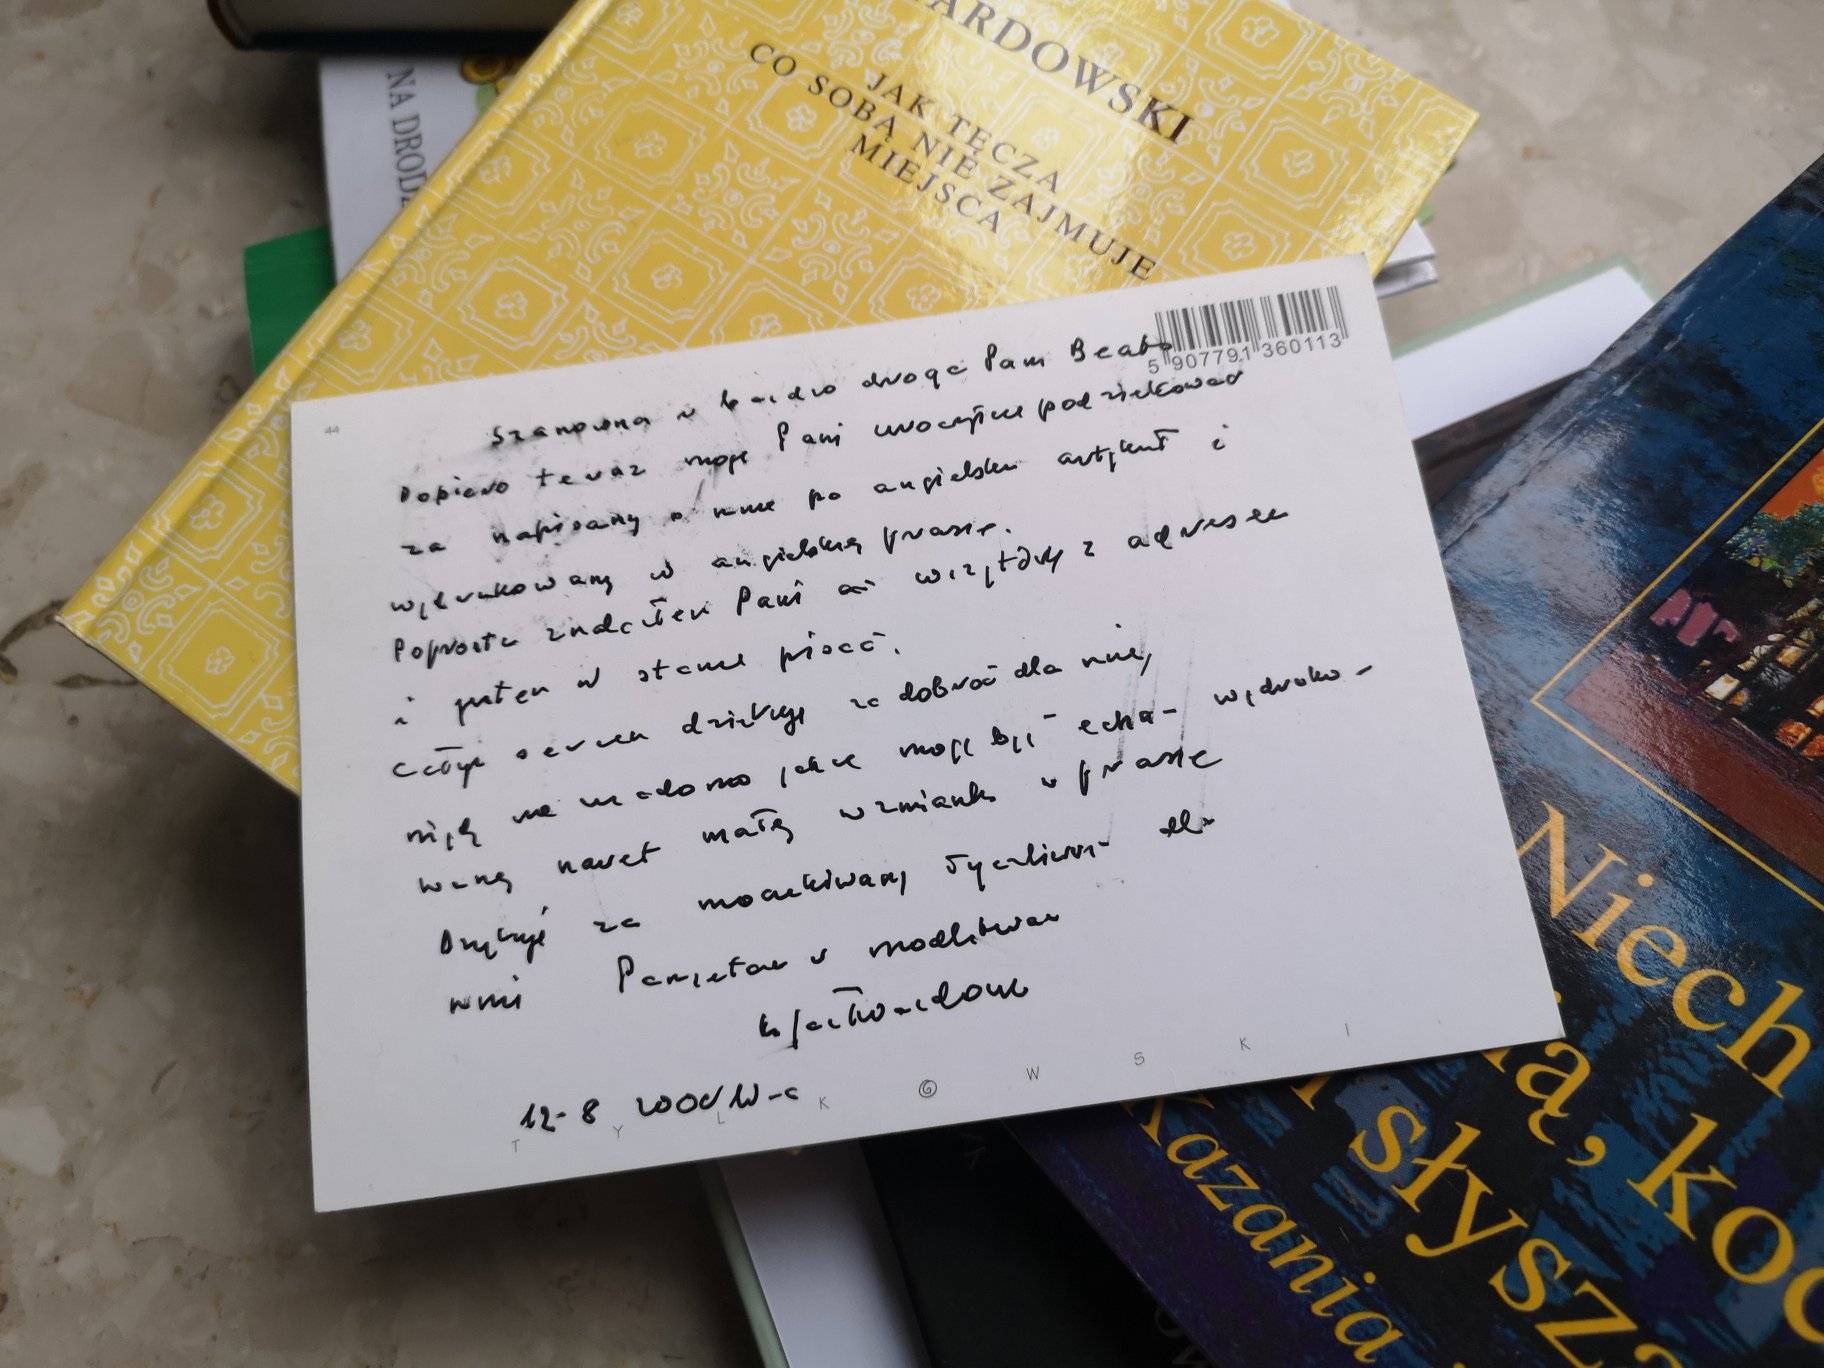 NA DRODZE
ARDOWSKI
JAK TĘCZA
CO SOBĄ NIE ZAJMUJE
MIEJSCA
5 907791 360113
44
Szanowna i bardzo droga Pani Beato
Dopiero teraz mogę Pani uroczyście podziękować
za napisany o mnie po angielsku artykuł i
wydrukowany w angielskiej prasie.
Poprostu znalazłem Pani wizytówkę z adresem
i jestem w stanie pisać.
Całym sercem dziękuję za dobroć dla mnie,
nigdy nie wiadomo jakie mogą być echa wydruko-
waną nawet małą wzmianką w prasie
Dziękuję za nieoczekiwaną życzliwość dla
mnie Pamiętam w modlitwach
ks Jan Twardowski
12-8 W-a
T Y L K O W S K I
Niech
ą, ko
słysz
Kazania